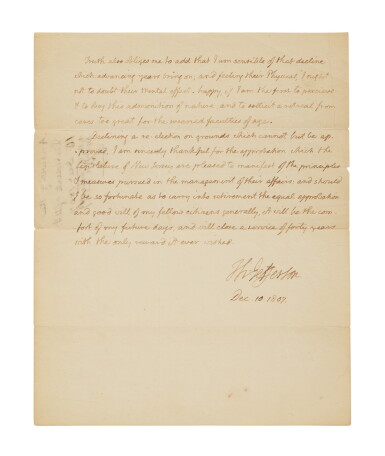 Truth also obliges me to add that I am sensible of that decline
which advancing years bring on, and feeling their Physical, I ought
not to doubt their Mental effect. happy if I am the first to percieve
& to obey this admonition of nature, and to sollicit a retreat from
cares too great for the wearied faculties of age.
Declining a re-election on grounds which cannot but be ap-
proved, I am sincerely thankful for the approbation which the
legislature of New Jersey are pleased to manifest of the principles
& measures pursued in the management of their affairs. and should
I be so fortunate as to carry into retirement the equal approbation
and good will of my fellow citizens generally, it will be the com-
fort of my future days, and will close a service of forty years
with the only reward it ever wished.
Th: Jefferson
Dec. 10. 1807.